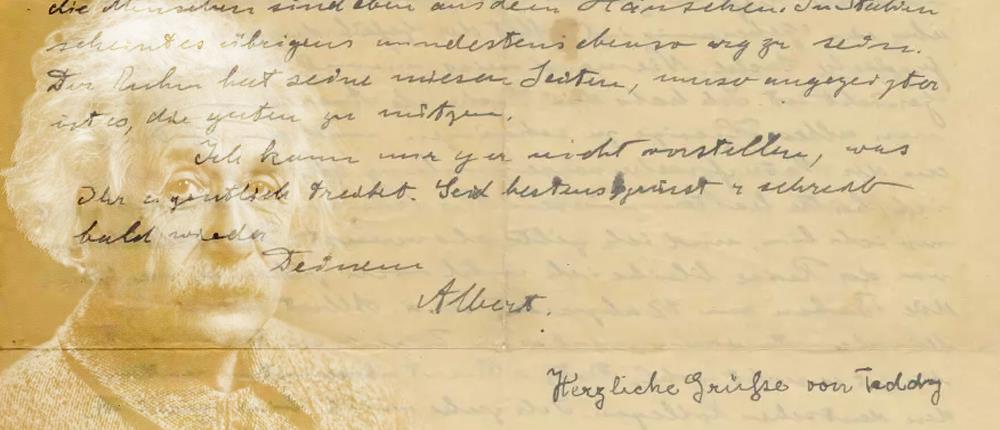 die Menschen sind eben aus dem Häuschen. In Italien
scheint es übrigens mindestens ebenso arg zu sein.
Der Ruhm hat seine miesen Seiten, umso angezeigter
ist es, die guten zu nützen.
Ich kann mir gar nicht vorstellen, was
Ihr eigentlich treibt. Seid bestens gegrüsst & schreibt
bald wieder
Deinem
Albert.
Herzliche Grüsse von Teddy